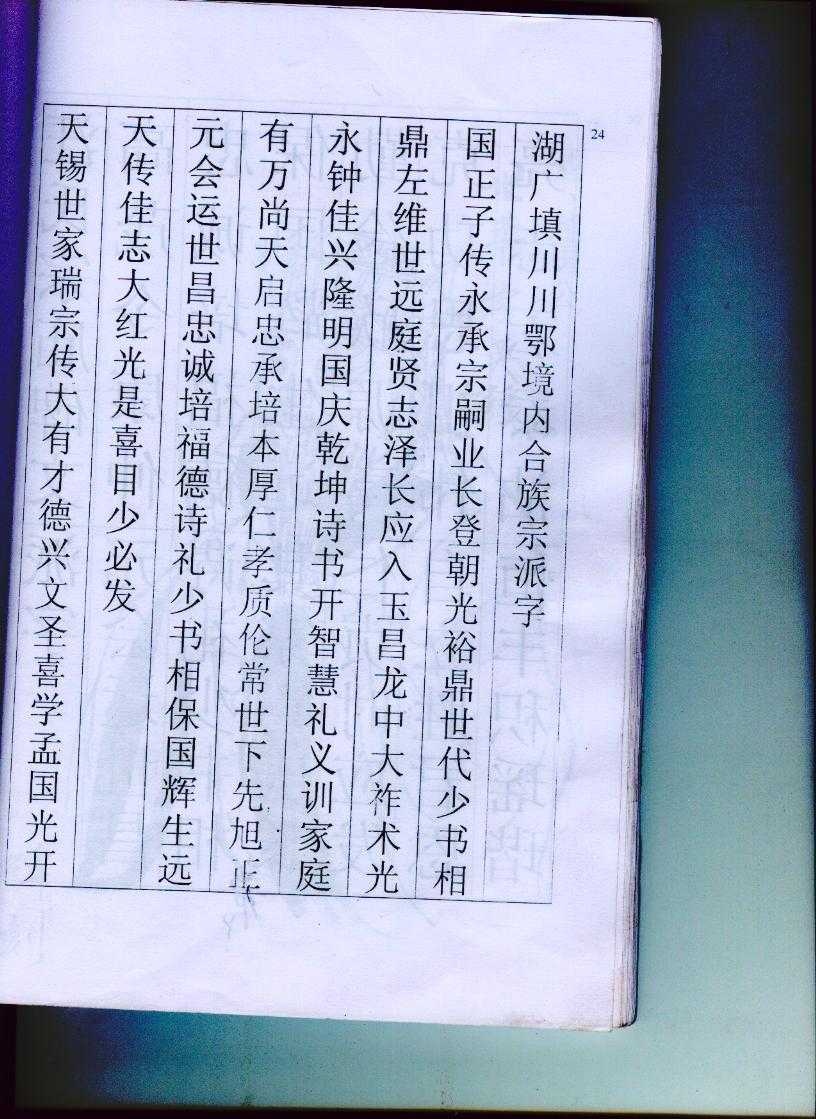 24
湖广填川川鄂境内合族宗派字
国正子传永承宗嗣业长登朝光裕鼎世代少书相
鼎左维世远庭贤志泽长应入玉昌龙中大祚术光
永钟佳兴隆明国庆乾坤诗书开智慧礼义训家庭
有万尚天启忠承培本厚仁孝质伦常世下先旭正
元会运世昌忠诚培福德诗礼少书相保国辉生远
天传佳志大红光是喜目少必发
天锡世家瑞宗传大有才德兴文圣喜学孟国光开